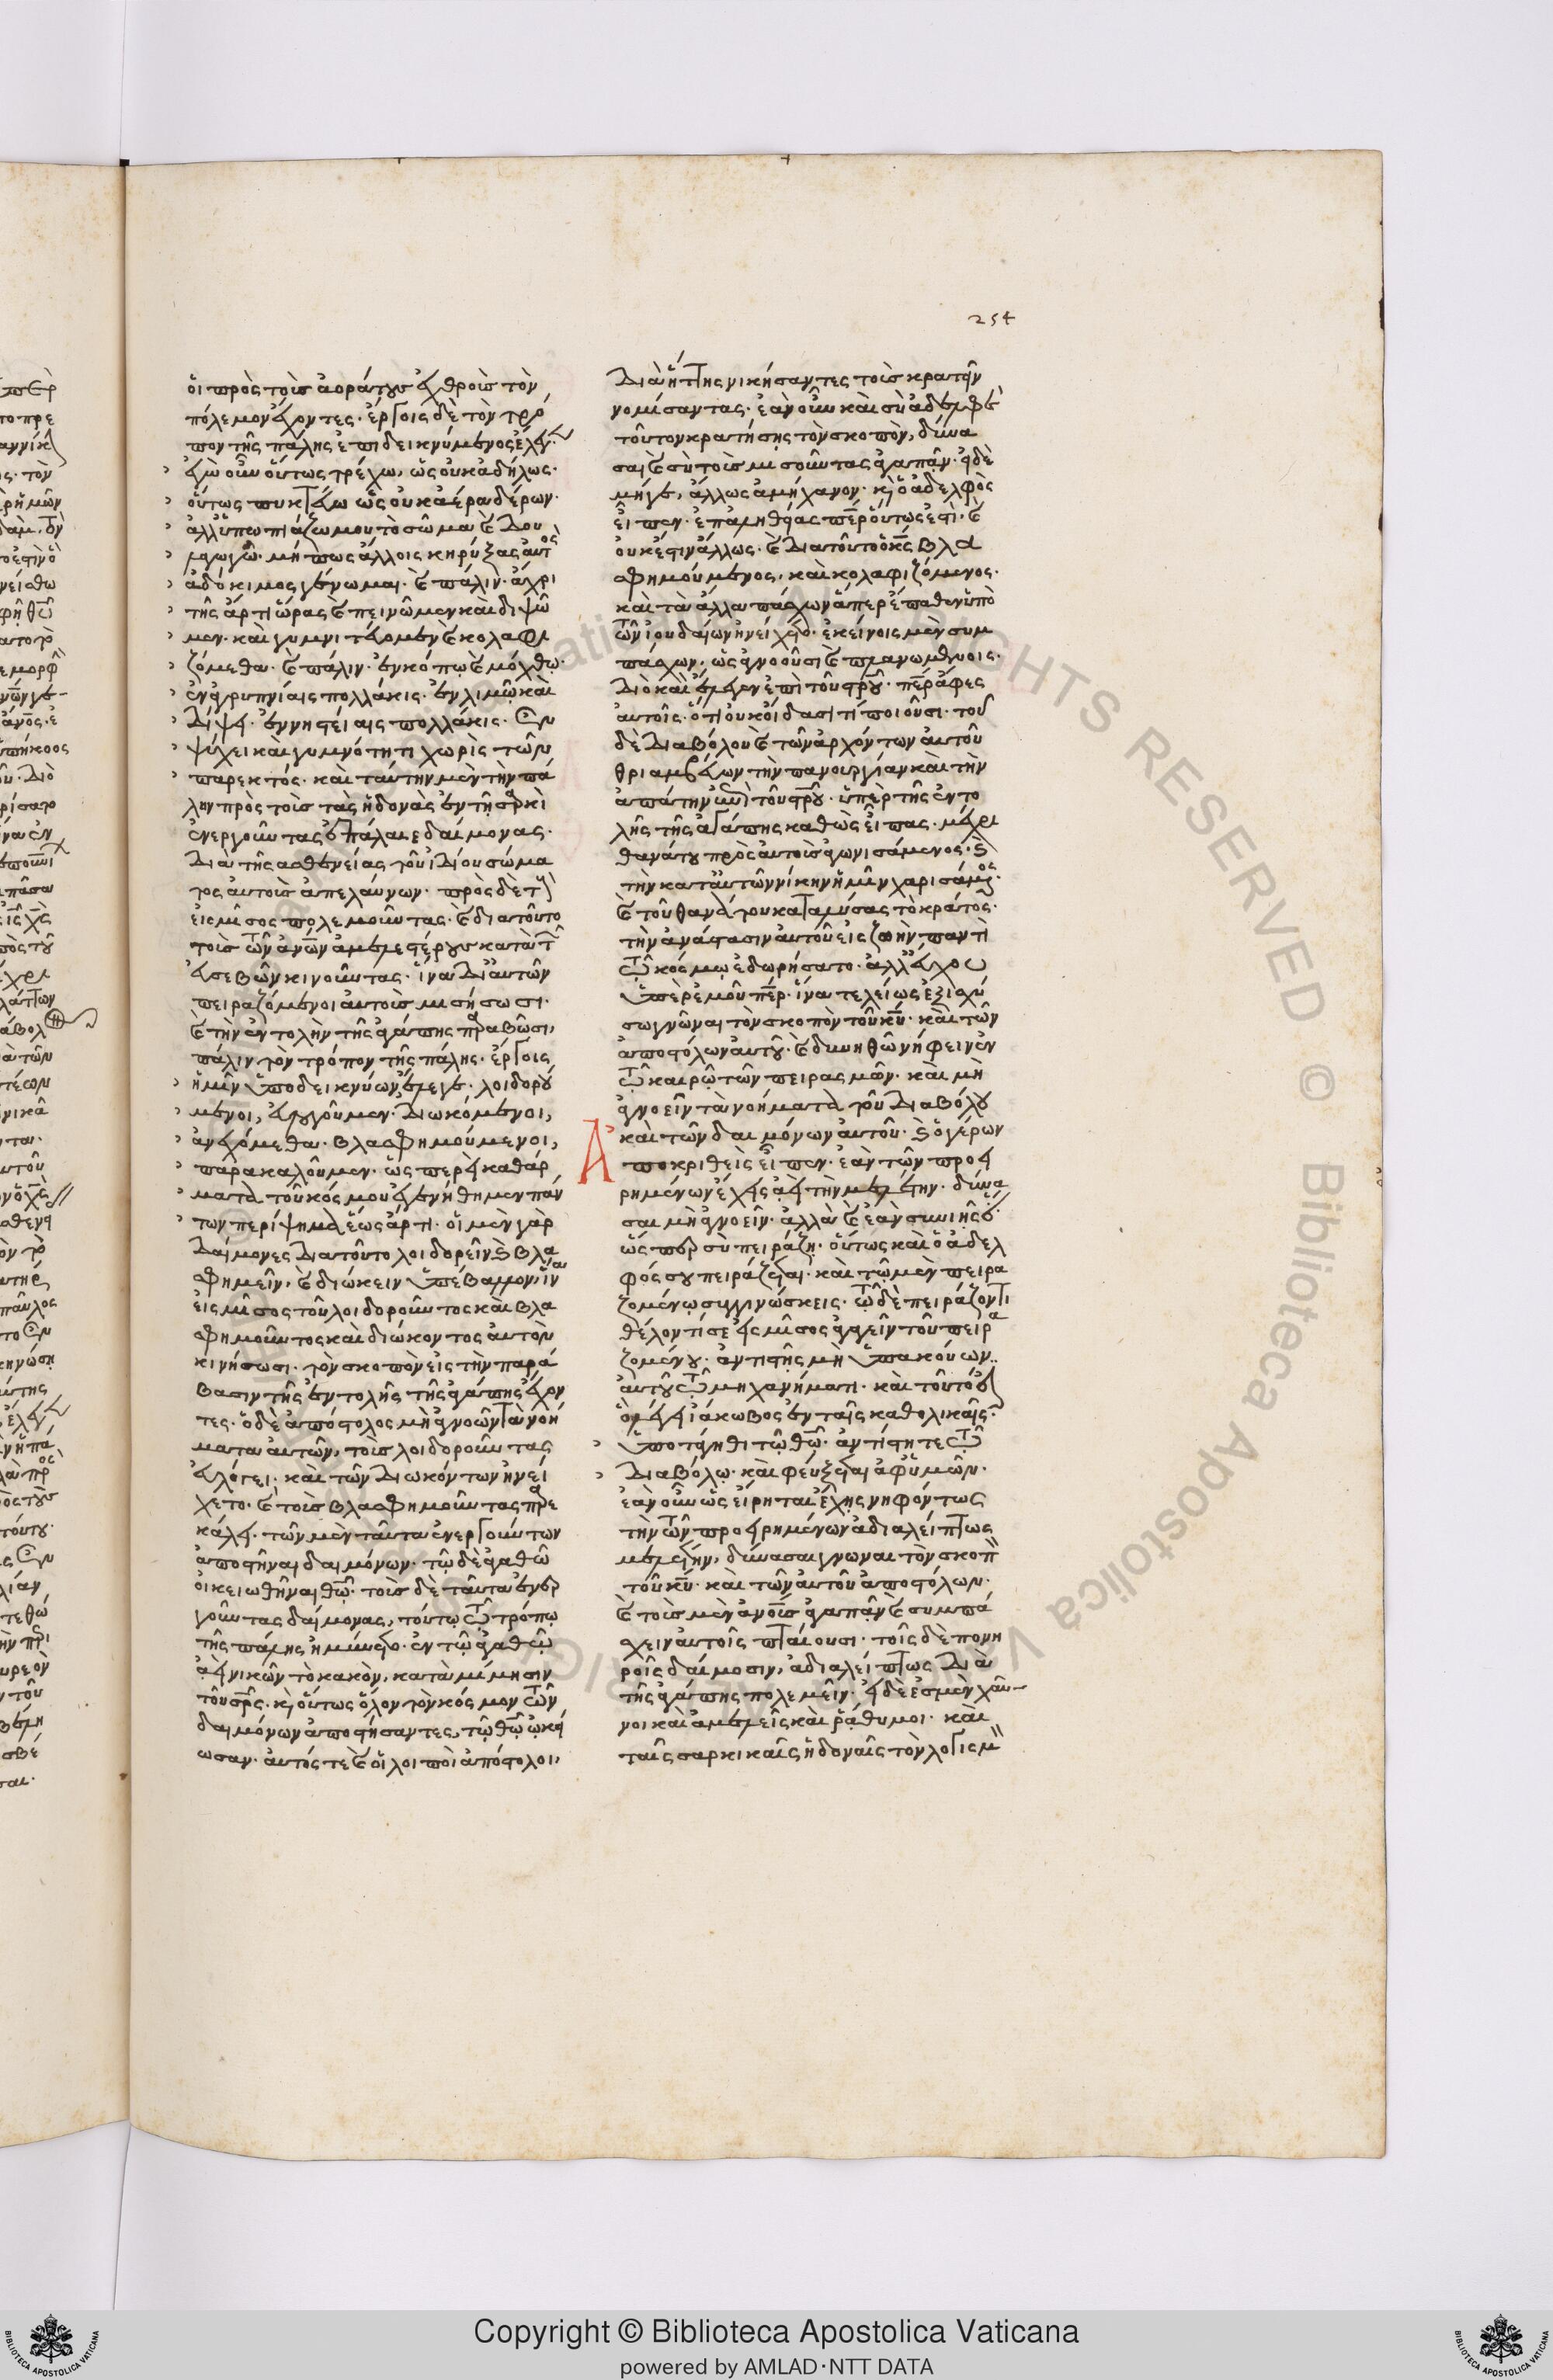 254
οἱ πρὸς τοὺς ἀοράτους ἐχθροὺς τὸν
πόλεμον ἔχοντες. ἔργοις δὲ τὸν τρό
πον τῆς πάλης ἐπιδεικνύμενος ἔλεγεν.
ἐγὼ οὖν οὕτως τρέχω, ὡς οὐκ ἀδήλως.
οὕτως πυκτεύω ὡς οὐκ ἀέρα δέρων.
ἀλλ' ὑπωπιάζω μου τὸ σῶμα καὶ δου
λαγωγῶ. μήπως ἄλλοις κηρύξας αὐτὸς
ἀδόκιμος γένωμαι. καὶ πάλιν. ἄχρι
τῆς ἄρτι ὥρας καὶ πεινῶμεν καὶ διψῶ
μεν. καὶ γυμνιτεύομεν καὶ κολαφι
ζόμεθα. καὶ πάλιν. ἐν κόπῳ καὶ μόχθῳ.
ἐν ἀγρυπνίαις πολλάκις. ἐν λιμῷ καὶ
δίψει. ἐν νηστείαις πολλάκις. ἐν
ψύχει καὶ γυμνότητι χωρὶς τῶν
παρεκτός. καὶ ταύτην μὲν τὴν πά
λην πρὸς τοὺς τὰς ἡδονὰς ἐν τῇ σαρκὶ
ἐνεργοῦντας ἐπάλαιε δαίμονας.
διὰ τῆς ἀσθενείας τοῦ ἰδίου σώμα
τος αὐτοὺς ἀπελαύνων. πρὸς δὲ τοὺς
εἰς μῖσος πολεμοῦντας. καὶ διατοῦτο
τοὺς τῶν ἀνῶν ἀμελεστέρους κατὰ τῶν
εὐσεβῶν κινοῦντας. ἵνα δι' αὐτῶν
πειραζόμενοι αὐτοὺς μισήσωσι.
καὶ τὴν ἐντολὴν τῆς ἀγάπης παραβῶσι,
πάλιν τον τρόπον τῆς πάλης. ἔργοις
ἡμῖν ὑποδεικνύων ἔλεγε. λοιδορού
μενοι, εὐλογοῦμεν. διωκόμενοι,
ἀνεχόμεθα. βλασφημούμενοι,
παρακαλοῦμεν. ὡς περικαθάρ
ματα τοῦ κόσμου ἐγενήθημεν πάν
των περίψημα ἕως ἄρτι. οἱ μὲν γὰρ
δαίμονες διατοῦτο λοιδορεῖν καὶ βλα
σφημεῖν. καὶ διώκειν ὑπέβαλλον, ἵνα
εἰς μῖσος τοῦ λοιδοροῦντος καὶ βλα
σφημοῦντος καὶ διώκοντος αὐτὸν
κινήσωσι. τὸν σκοπὸν εἰς τὴν παρά
βασιν τῆς ἐντολῆς τῆς ἀγάπης ἔχον
τες. ὁ δὲ ἀπόστολος μὴ ἀγνοῶν τὰ νοή
ματα αὐτῶν, τοὺς λοιδοροῦντας
εὐλόγει. καὶ τῶν διωκόντων ἠνεί
χετο. καὶ τοὺς βλασφημοῦντας παρε
κάλει. τῶν μὲν ταῦτα ἐνεργούντων
ἀποστῆναι δαιμόνων. τῷ δὲ ἀγαθῷ
οἰκειωθῆναι θῶ. τοὺς δὲ ταῦτα ἐνερ
γοῦντας δαίμονας, τούτῳ τῷ τρόπῳ
τῆς πάλης ἠμύνετο. ἐν τῷ ἀγαθῷ
ἀεὶ νικῶν τὸ κακὸν, κατὰ μίμησιν
τοῦ σρς. καὶ οὕτως ὅλον τὸν κόσμον τῶν
δαιμόνων ἀποστήσαντες, τῷ θῶ ᾠκεί
ωσαν. αὐτός τε καὶ οἱ λοιποὶ ἀπόστολοι,
διὰ ἥττης νικήσαντες τοὺς κρατεῖν
νομίσαντας. ἐὰν οὖν καὶ σὺ ἀδελφὲ
τοῦτον κρατήσῃς τὸν σκοπὸν, δύνα
σαι καὶ σὺ τοὺς μισοῦντας ἀγαπᾶν. εἰ δὲ
μήγε, ἄλλως ἀμήχανον. καὶ ὁ ἀδελφὸς
εἶπεν. ἐπ' ἀληθείας πάτερ οὕτως ἐστί. καὶ
οὐκ ἔστιν ἄλλως. καὶ διατοῦτο ὁ κς βλα
σφημούμενος, καὶ κολαφιζόμενος.
καὶ τὰ ἄλλα πάσχων ἅπερ ἔπαθεν ὑπὸ
τῶν ἰουδαίων ἠνείχετο. ἐκείνοις μὲν συμ
πάσχων, ὡς ἀγνοοῦσι καὶ πλανωμένοις.
διὸ καὶ ἔλεγεν ἐπὶ τοῦ στρου. περ ἄφες
αὐτοῖς. ὅτι οὐκ οἴδασι τί ποιοῦσι. τοῦ
δὲ διαβόλου καὶ τῶν ἀρχόντων αὐτοῦ
θριαμβεύων τὴν πανουργίαν καὶ τὴν
ἀπάτην ἐπὶ τοῦ στρου. ὑπὲρ τῆς ἐντο
λῆς τῆς ἀγάπης καθὼς εἶπας. μέχρι
θανάτου πρὸς αὐτοὺς ἀγωνισάμενος. καὶ
τὴν κατ' αὐτῶν νίκην ἡμῖν χαρισάμενος.
καὶ τοῦ θανάτου καταλύσας τὸ κράτος.
τὴν ἀνάστασιν αὐτοῦ εἰς ζωὴν παντὶ
τῷ κόσμῳ ἐδωρήσατο. ἀλλ' εὔχου
ὑπὲρ ἐμοῦ περ. ἵνα τελείως ἐξισχύ
σω γνῶναι τὸν σκοπὸν τοῦ κυ. καὶ τῶν
ἀποστόλων αὐτοῦ. καὶ δυνηθῶ νήφειν ἐν
τῷ καιρῷ τῶν πειρασμῶν. καὶ μὴ
ἀγνοεῖν τὰ νοήματα τοῦ διαβόλου
καὶ τῶν δαιμόνων αὐτοῦ. καὶ ὁ γέρων
Ἀποκριθεὶς εἶπεν. ἐὰν τῶν προει
ρημένων ἔχῃς ἀεὶ τὴν μελέτην. δύνα
σαι μὴ ἀγνοεῖν. ἀλλὰ καὶ ἐὰν συνιῇς ὅτι
ὥσπερ σὺ πειράζῃ. οὕτως καὶ ὁ ἀδελ
φός σου πειράζεται. καὶ τῷ μὲν πειρα
ζομένῳ συγγινώσκεις. τῷ δὲ πειράζοντι
θέλοντί σε εἰς μῖσος ἀγαγεῖν τοῦ πειρα
ζομένου. ἀντιστῇς μὴ ὑπακούων
αὐτοῦ τῷ μηχανήματι. καὶ τοῦτό ἐστιν
ὃ λέγει ἰάκωβος ἐν ταῖς καθολικαῖς.
ὑποτάγηθι τῷ θῶ. ἀντίστητε τῷ
διαβόλῳ. καὶ φεύξεται ἀφ' ὑμῶν.
ἐὰν οὖν ὡς εἴρηται ἔχῃς νηφόντως
τὴν τῶν προειρημένων ἀδιαλείπτως
μελέτην, δύνασαι γνῶναι τὸν σκοπὸν
τοῦ κυ. καὶ τῶν αὐτοῦ ἀποστόλων.
καὶ τοὺς μὲν ἀνους ἀγαπᾶν καὶ συμπά
σχειν αὐτοῖς πταίουσι. τοῖς δὲ πονη
ροῖς δαίμοσιν, ἀδιαλείπτως διὰ
τῆς ἀγάπης πολεμεῖν. εἰ δέ ἐσμεν χαῦ
νοι καὶ ἀμελεῖς καὶ ῥάθυμοι. καὶ
ταῖς σαρκικαῖς ἡδοναῖς τὸν λογισμὸν
Copyright © Biblioteca Apostolica Vaticana
powered by AMLAD·NTT DATA